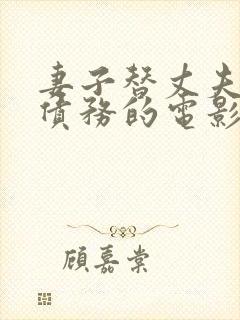 妻子替丈夫
債務的電影
顧嘉棠